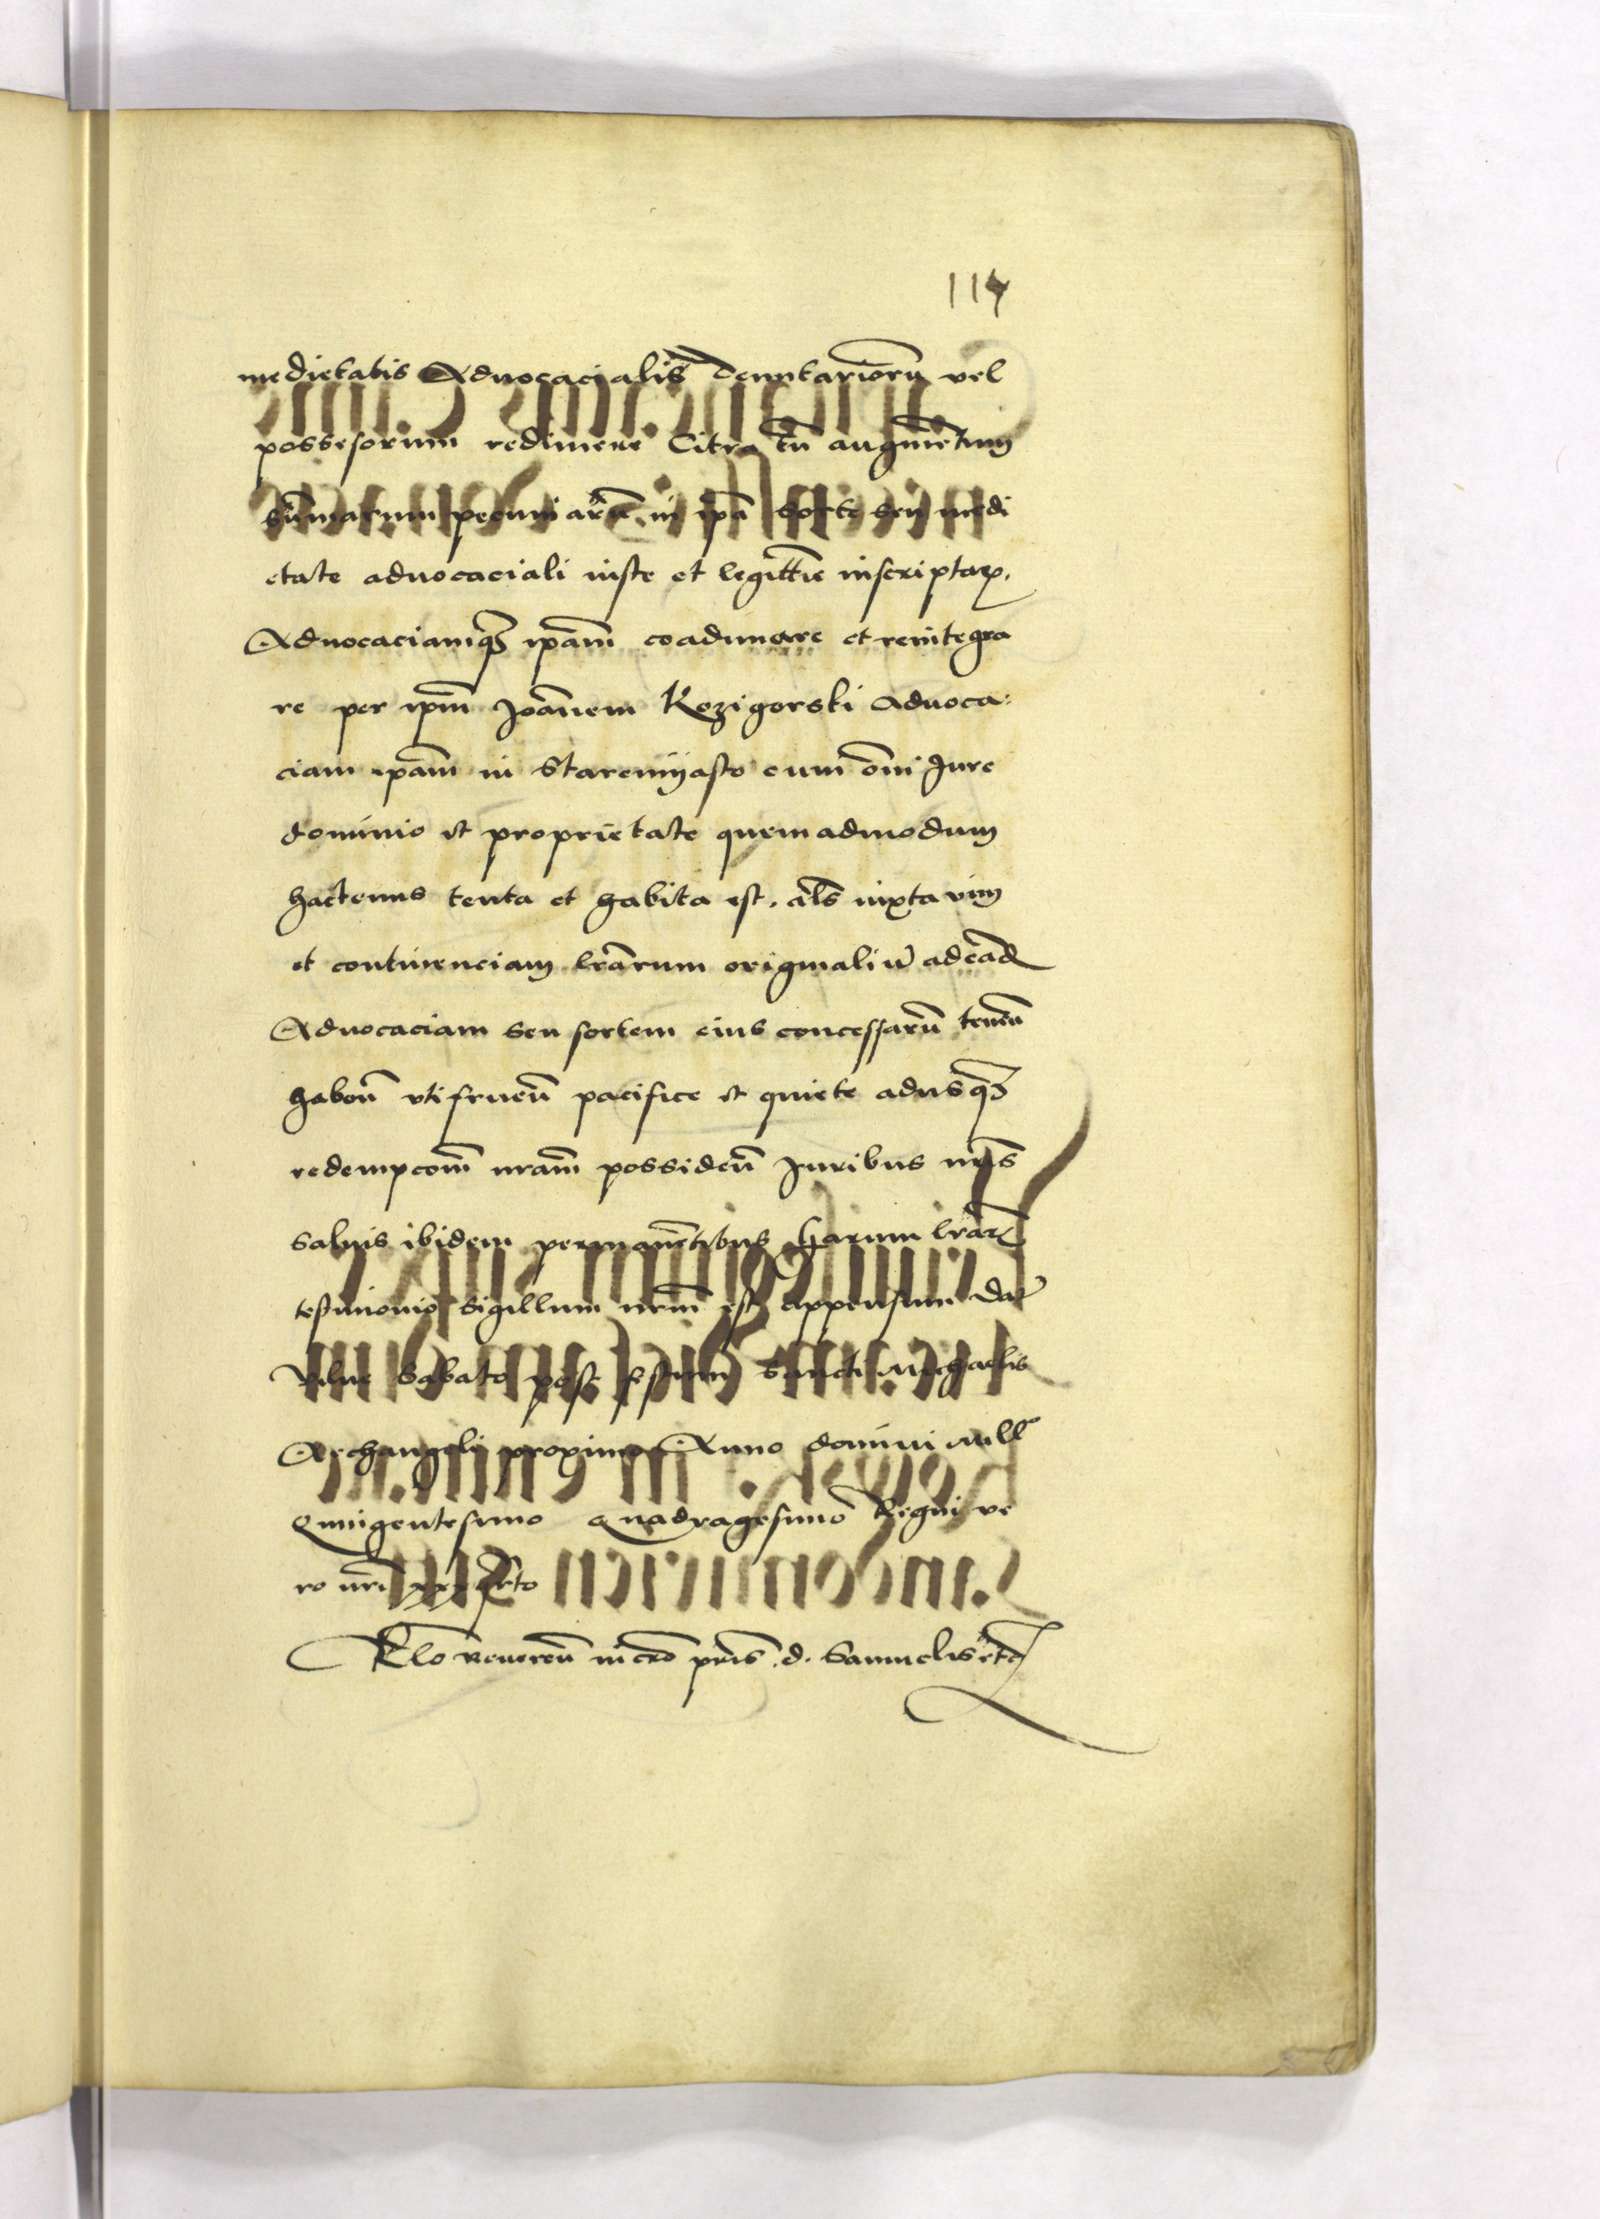 114
medietatis Advocacialis Tenutarioru vel
possesorum redimere Citra tn augmetum
summarum pecuniaru in ipa sorte seu medi
etate advocaciali iuste et legittie inscriptar,
Advocaciamq ipam coadunare et reintegra
re per ipm Joannem Kozigorski advoca:
ciam ipam in Staremyasto cum omni Jure
dominio et proprietate quemadmodum
hactenus tenta et habita est, als iuxta vim
et continenciam lrarum originaliu ad eand
Advocaciam seu sortem eius concessaru tenen
haben utifruen pacifice et quiete adusq
redempcom nram possiden Juribus nris
salvis ibidem permanetibus harum lrar
testimonio sigillum nrm est appensum Dat
Vilne Sabato post festum Sancti Michaelis
Archangeli proximo Anno domini mill
Quingentesimo Quadragesimo Regni ve
ro nri xxx qrto
Rlo reveren in cro pris d. Samuelis etc